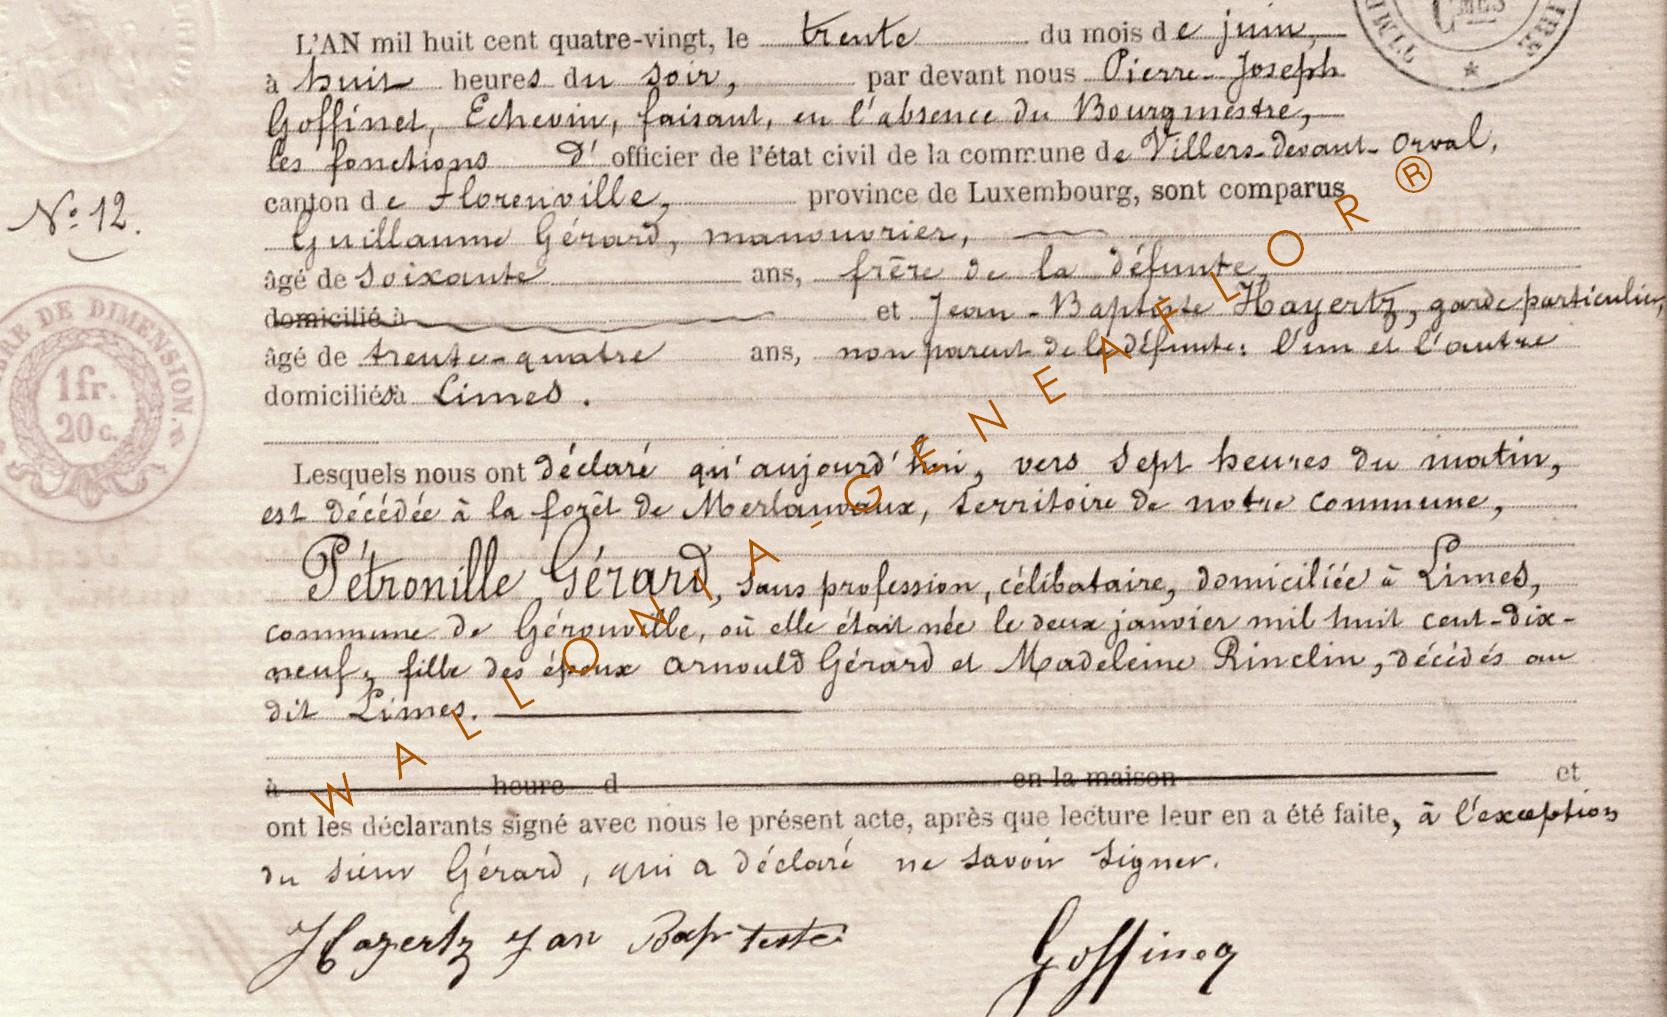 L'AN mil huit cent quatre-vingt, le trente du mois de juin,
à huit heures du soir, par devant nous Pierre-Joseph
Goffinet, Echevin, faisant, en l'absence du Bourgmestre,
les fonctions d'officier de l'état civil de la commune de Villers-devant-Orval,
canton de Florenville, province de Luxembourg, sont comparus
N° 12.
Guillaume Gérard, manouvrier,
âgé de soixante ans, frère de la défunte,
domicilié à et Jean-Baptiste Hayertz, garde particulier,
âgé de trente-quatre ans, non parent de la défunte: l'un et l'autre
domiciliés à Limes.
Lesquels nous ont déclaré qu'aujourd'hui, vers sept heures du matin,
est décédée à la forêt de Merlanvaux, territoire de notre commune,
Pétronille Gérard, sans profession, célibataire, domiciliée à Limes,
commune de Gérouville, où elle était née le deux janvier mil huit cent-dix-
neuf, fille des époux Arnould Gérard et Madeleine Rinclin, décédés au
dit Limes.
à heure d en la maison et
ont les déclarants signé avec nous le présent acte, après que lecture leur en a été faite, à l'exception
du sieur Gérard, qui a déclaré ne savoir signer.
Hayertz Jan Baptiste
TIMBRE DE DIMENSION.
1 fr.
20 c.
WALLONIA-GENEAFLOR ®